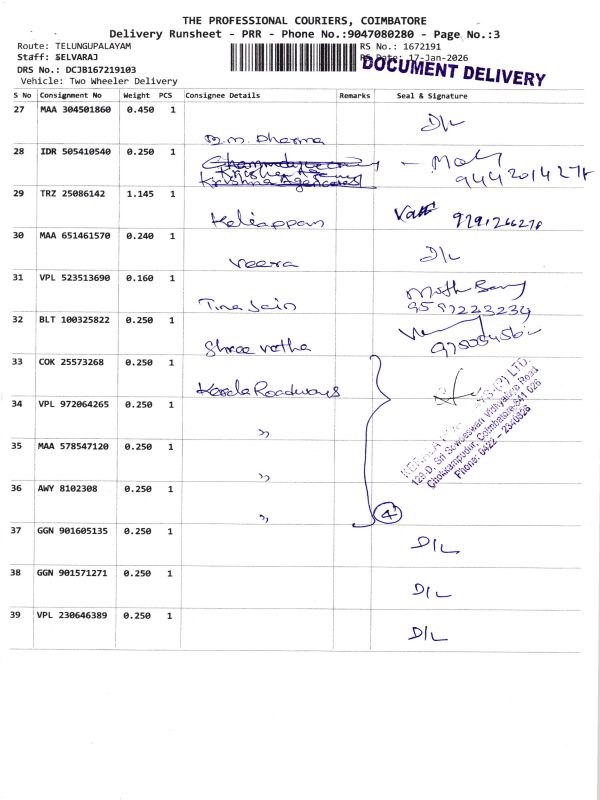 THE PROFESSIONAL COURIERS, COIMBATORE
Delivery Runsheet - PRR - Phone No.:9047080280 - Page No.:3
Route: TELUNGUPALAYAM
RS No.: 1672191
Staff: SELVARAJ
RS Date: 17-Jan-2026
DOCUMENT DELIVERY
DRS No.: DCJB167219103
Vehicle: Two Wheeler Delivery
S No Consignment No Weight PCS Consignee Details Remarks Seal & Signature
27 MAA 304501860 0.450 1
D/L
M.M. Dharma
28 IDR 505410540 0.250 1
Krishna Agencies
9442014278
29 TRZ 25086142 1.145 1
Kaliappan
30 MAA 651461570 0.240 1
D/L
Veera
31 VPL 523513690 0.160 1
Tina Jain
9597223234
32 BLT 100325822 0.250 1
Shree
33 COK 25573268 0.250 1
Kerala Roadways
34 VPL 972064265 0.250 1
"
35 MAA 578547120 0.250 1
"
36 AWY 8102308 0.250 1
"
4
(P) LTD.
129-D, Sri Sowdeswari Vidhyalaya Road
Chokkampudur, Coimbatore-641 026
Phone: 0422 - 2340326
37 GGN 901605135 0.250 1
D/L
38 GGN 901571271 0.250 1
D/L
39 VPL 230646389 0.250 1
D/L